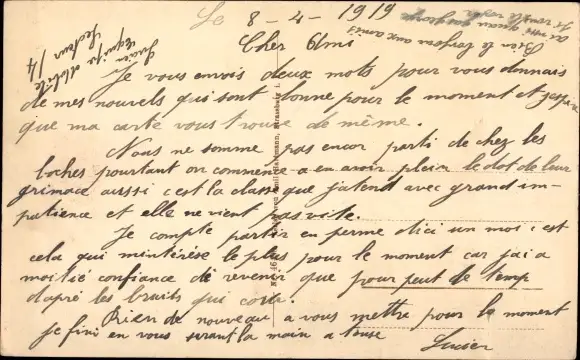 Le 8-4-1919
Cher Ami
Je vous envois deux mots pour vous donnais
de mes nouvels qui sont bonne pour le moment et jespere
que ma carte vous trouve de même.
Nous ne somme pas encor parti de chez les
boches pourtant on commence a en avoir plein le dot de leur
grimace aussi c'est la classe que j'atend avec grand im-
patience et elle ne vient pas vite.
Je compte partir en perme dici un moi: est
cela qui mintérèse le plus pour le moment car j'ai a
moitié confiance de revenir que pour peut de temp
dapré les bruits qui cour.
Rien de nouveau a vous mettre pour le moment
je fini en vous serant la main a touse
Lucien
Lucien
Equipe mobile
Secteur 14
Bien le bonjour aux amis
ainsi quan